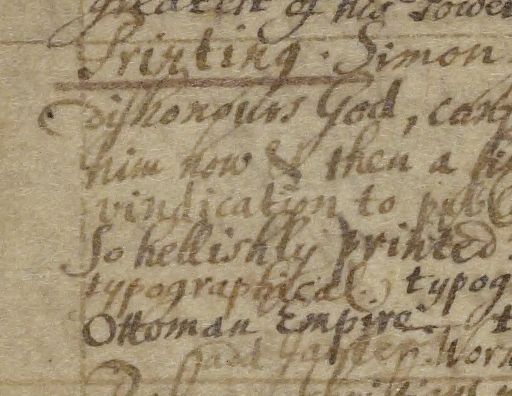 greatest of his Power
Printing. Simon
Dishonours God, cast
him now & then a
vindication to
So hellishly printed
typographical typog
Ottoman Empire,
Work